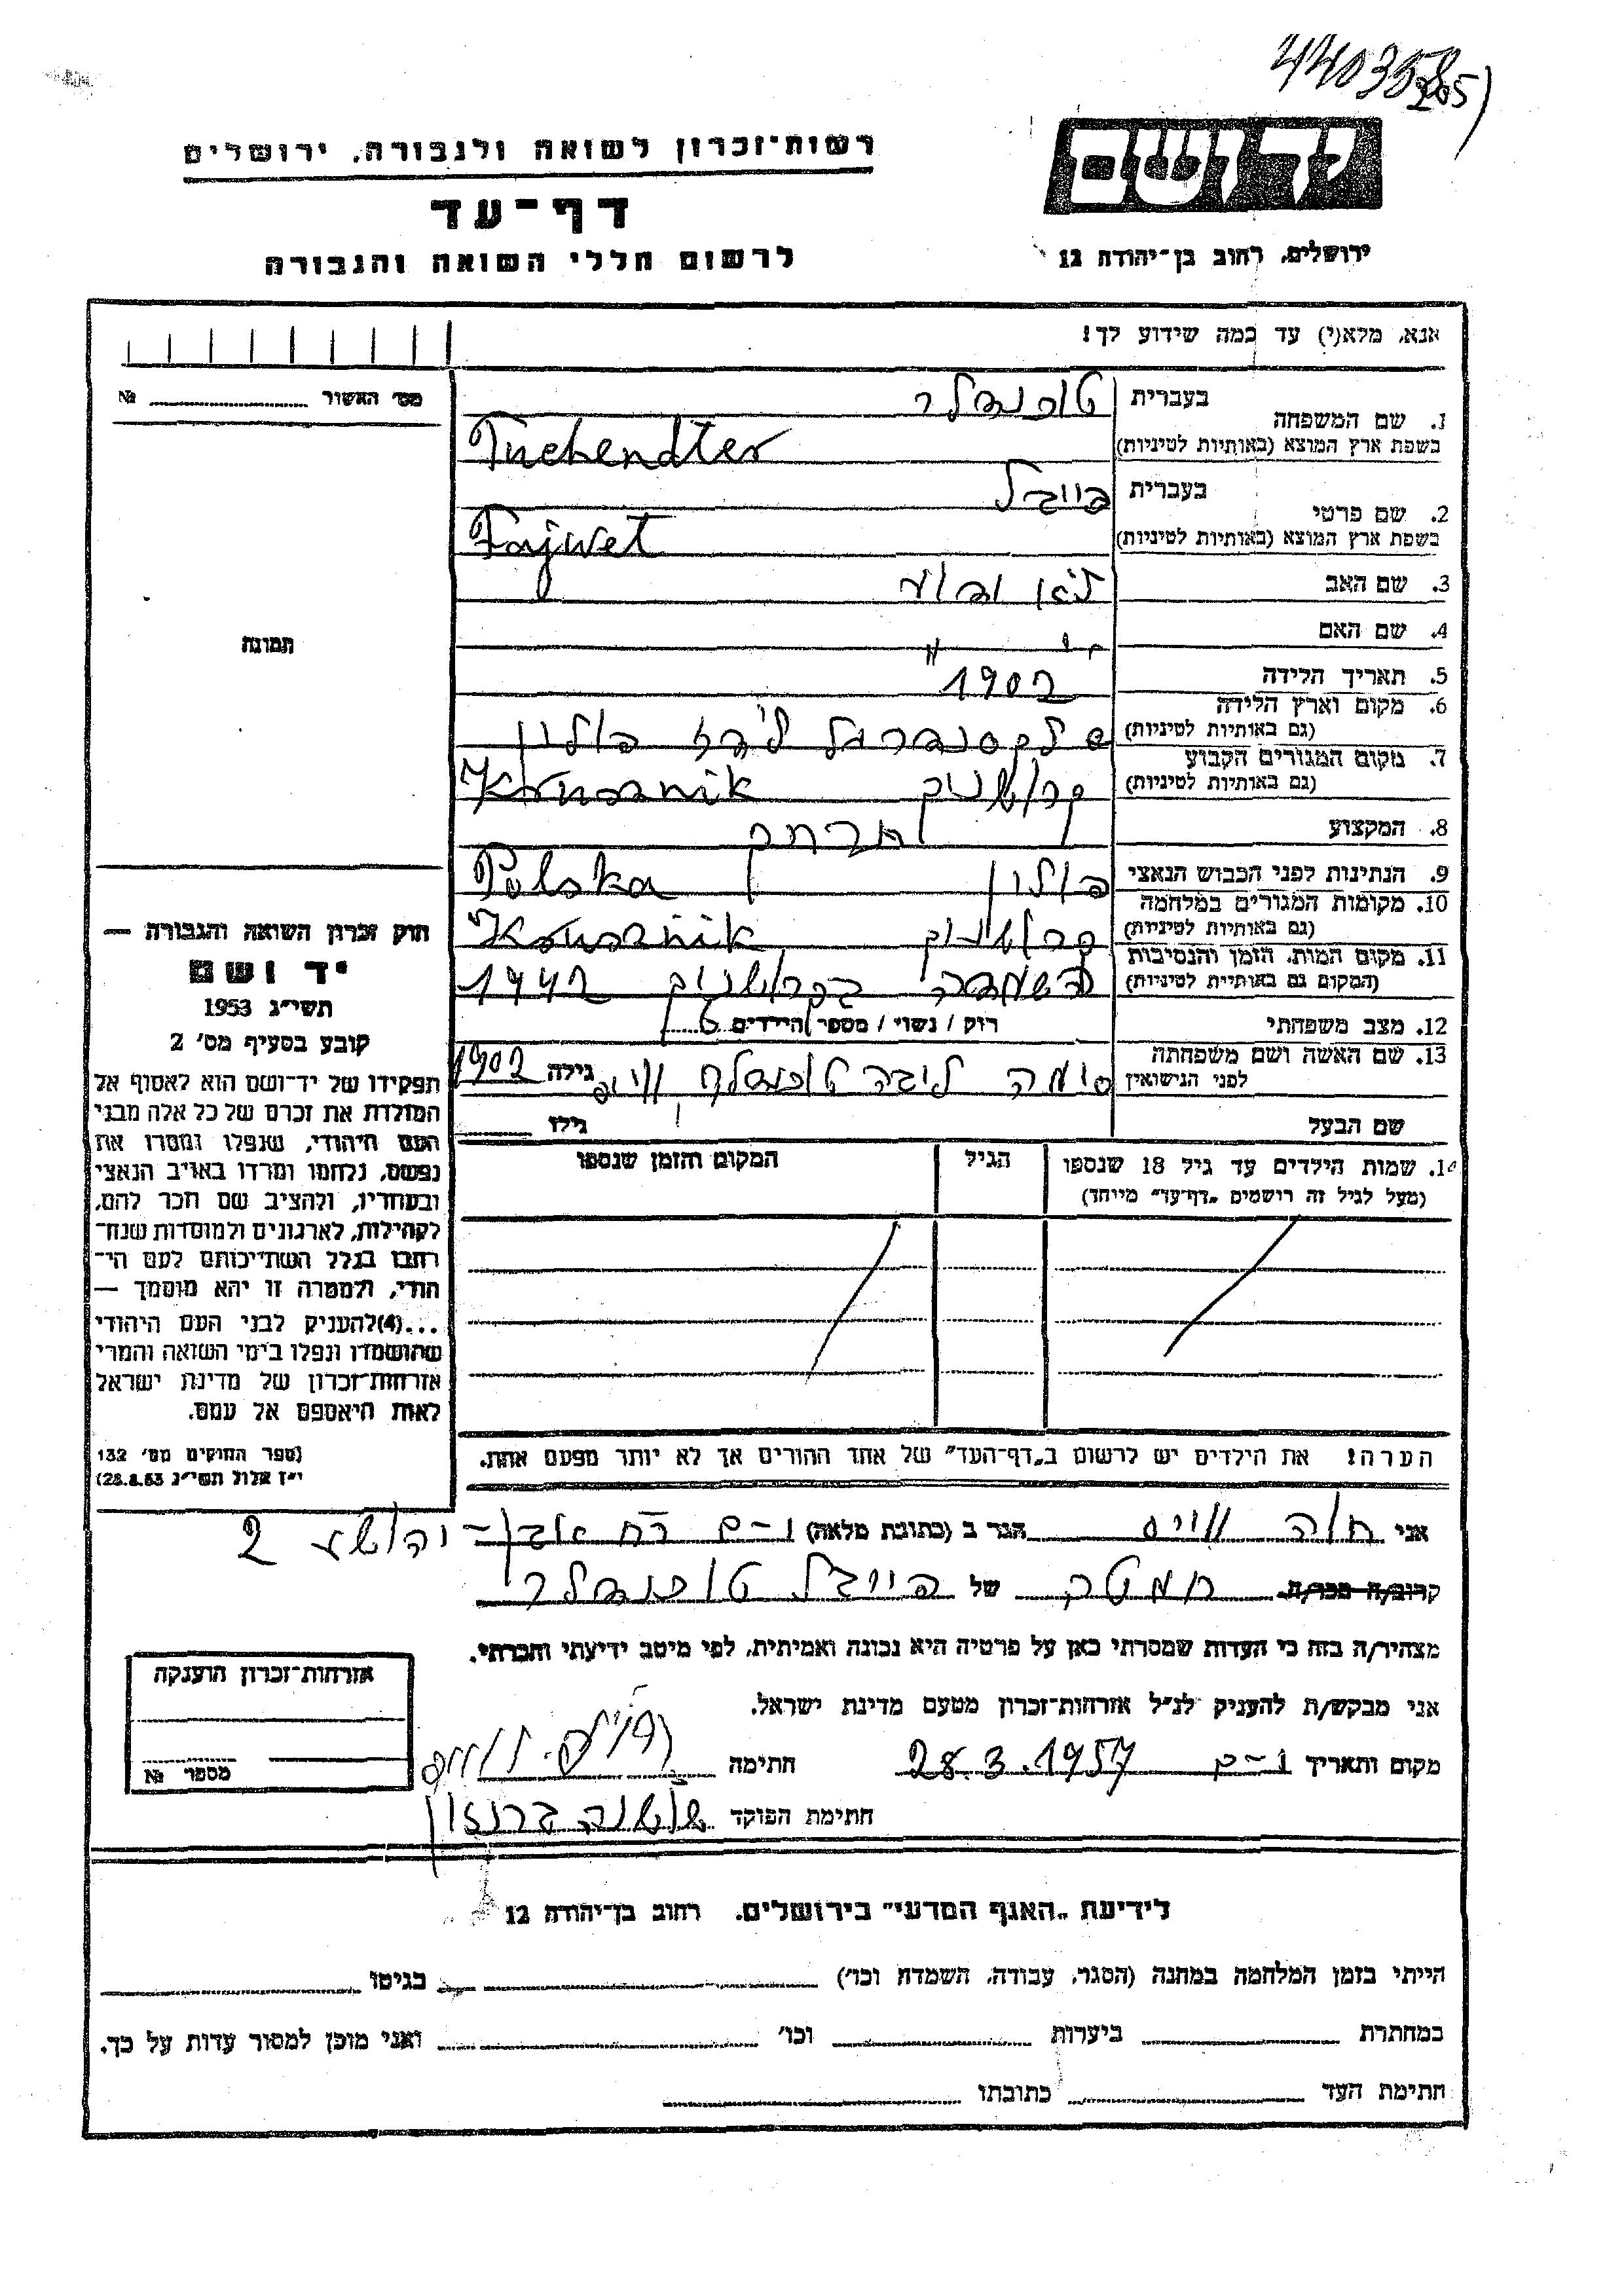 440358
205)
יד ושם
רשות־זכרון לשואה ולגבורה, ירושלים
דף־עד
לרשום חללי השואה והגבורה
ירושלים, רחוב בן־יהודה 12
אנא, מלא(י) עד כמה שידוע לך!
מס׳ האשור № 
1. שם המשפחה
בעברית טוכנדלר
בשפת ארץ המוצא (באותיות לטיניות) Tuchendler
2. שם פרטי
בעברית פייבל
בשפת ארץ המוצא (באותיות לטיניות) Fajwel
3. שם האב לא ידוע
4. שם האם
5. תאריך הלידה 1902
6. מקום וארץ הלידה
(גם באותיות לטיניות) פולין
7. מקום המגורים הקבוע
(גם באותיות לטיניות) קרושניק Krusznik
8. המקצוע
9. הנתינות לפני הכבוש הנאצי פולין Polska
10. מקומות המגורים במלחמה
(גם באותיות לטיניות) קרושניק Krusznik
11. מקום המות, הזמן והנסיבות
(המקום גם באותיות לטיניות) בקרושניק 1942
12. מצב משפחתי רוק / נשוי / מספר הילדים
13. שם האשה ושם משפחתה
לפני הנישואין ליבה טוכנדלר ווייס גילה 1902
שם הבעל גילו
14. שמות הילדים עד גיל 18 שנספו
(מעל לגיל זה רושמים „דף־עד” מייחד)
הגיל
המקום והזמן שנספו
הערה! את הילדים יש לרשום ב„דף־העד” של אחד ההורים אך לא יותר מפעם אחת.
תמונה
חוק זכרון השואה והגבורה —
יד ושם
תשי״ג 1953
קובע בסעיף מס׳ 2
תפקידו של יד־ושם הוא לאסוף אל
המולדת את זכרם של כל אלה מבני
העם היהודי, שנפלו ומסרו את
נפשם, נלחמו ומרדו באויב הנאצי
ובעוזריו, ולהציב שם וזכר להם,
לקהילות, לארגונים ולמוסדות שנח־
רבו בגלל השתייכותם לעם הי־
הודי, ולמטרה זו יהא מוסמך —
...(4)להעניק לבני העם היהודי
שהושמדו ונפלו בימי השואה והמרי
אזרחות־זכרון של מדינת ישראל
לאות היאספם אל עמם.
(ספר החוקים מס׳ 132
י״ז אלול תשי״ג 28.8.53)
אני חוה ווייס הגר ב (כתובת מלאה) י-ם רח אבן-יהושע 2
קרוב/ה מכר/ה של פייבל טוכנדלר
מצהיר/ה בזה כי העדות שמסרתי כאן על פרטיה היא נכונה ואמיתית, לפי מיטב ידיעתי והכרתי.
אני מבקש/ת להעניק לנ״ל אזרחות־זכרון מטעם מדינת ישראל.
מקום ותאריך י-ם 28.3.1957 חתימה
חתימת הפוקד
אזרחות־זכרון הוענקה
מספר №
לידיעת „האגף המדעי” בירושלים. רחוב בן־יהודה 12
הייתי בזמן המלחמה במחנה (הסגר, עבודה, השמדה וכו׳) בגיטו
במחתרת ביערות וכו׳ ואני מוכן למסור עדות על כך.
חתימת העד כתובתו